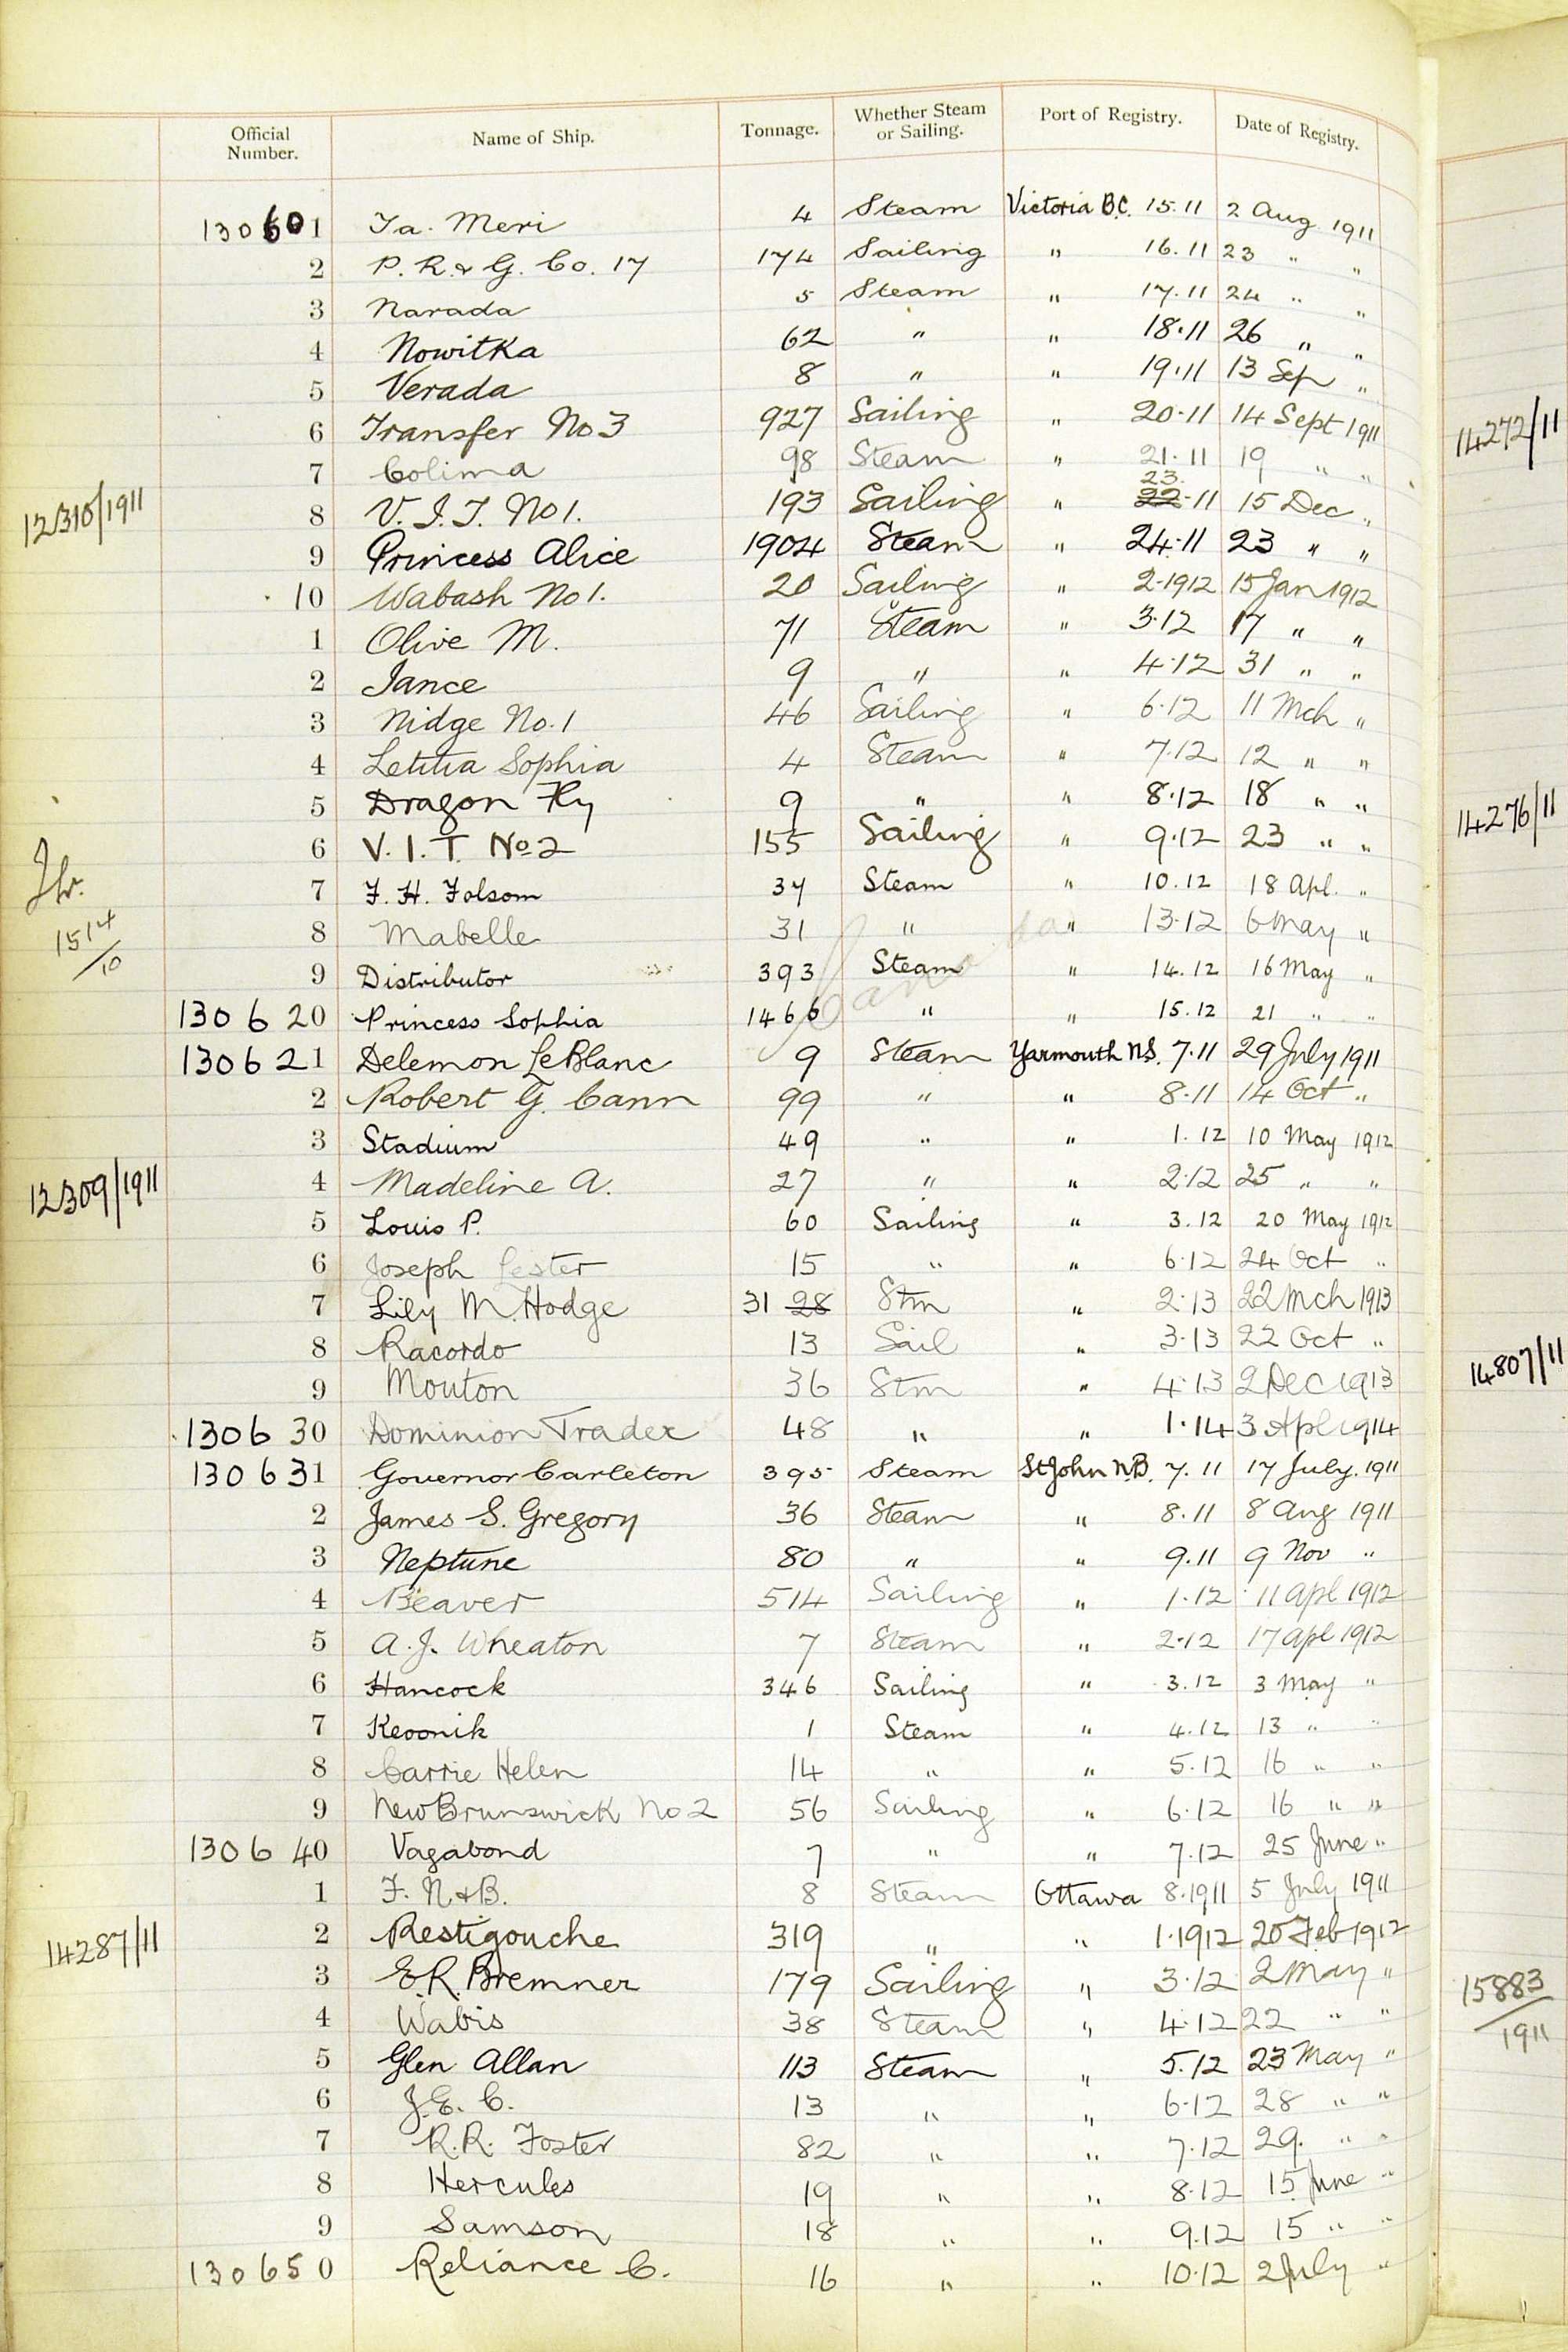 Official Number. Name of Ship. Tonnage. Whether Steam or Sailing. Port of Registry. Date of Registry.
130601 Ta. Meri 4 Steam Victoria B.C. 15.11 2 Aug. 1911
2 P. R. & G. Co. 17 174 Sailing " 16.11 23 " "
3 Narada 5 Steam " 17.11 24 " "
4 Nowitka 62 " " 18.11 26 " "
5 Verada 8 " " 19.11 13 Sep "
6 Transfer No 3 927 Sailing " 20.11 14 Sept 1911
7 Colima 98 Steam " 21.11 19 " "
12310/1911 8 V. I. T. No 1. 193 Sailing " 23. 22.11 15 Dec "
9 Princess Alice 1904 Steam " 24.11 23 " "
10 Wabash No 1. 20 Sailing " 2.1912 15 Jan 1912
1 Olive M. 71 Steam " 3.12 17 " "
2 Jance 9 " " 4.12 31 " "
3 Nidge No. 1 46 Sailing " 6.12 11 Mch "
4 Letitia Sophia 4 Steam " 7.12 12 " "
5 Dragon Fly 9 " " 8.12 18 " "
6 V. I. T. No 2 155 Sailing " 9.12 23 " "
7 F. H. Folsom 37 Steam " 10.12 18 Apl. "
1514/10 8 Mabelle 31 " " 13.12 6 May "
9 Distributor 393 Steam " 14.12 16 May "
130620 Princess Sophia 1466 " " 15.12 21 " "
130621 Delemon LeBlanc 9 Steam Yarmouth N.S. 7.11 29 July 1911
2 Robert G. Cann 99 " " 8.11 14 Oct "
3 Stadium 49 " " 1.12 10 May 1912
12309/1911 4 Madeline A. 27 " " 2.12 25 " "
5 Louis P. 60 Sailing " 3.12 20 May 1912
6 Joseph Lester 15 " " 6.12 24 Oct "
7 Lily M. Hodge 31 28 Stm " 2.13 22 Mch 1913
8 Racordo 13 Sail " 3.13 22 Oct "
9 Mouton 36 Stm " 4.13 2 Dec 1913
130630 Dominion Trader 48 " " 1.14 3 Apl 1914
130631 Governor Carleton 395 Steam St John N.B. 7.11 17 July. 1911
2 James S. Gregory 36 Steam " 8.11 8 Aug 1911
3 Neptune 80 " " 9.11 9 Nov "
4 Beaver 514 Sailing " 1.12 11 Apl 1912
5 A. J. Wheaton 7 Steam " 2.12 17 Apl 1912
6 Hancock 346 Sailing " 3.12 3 May "
7 Keoonik 1 Steam " 4.12 13 " "
8 Carrie Helen 14 " " 5.12 16 " "
9 New Brunswick No 2 56 Sailing " 6.12 16 " "
130640 Vagabond 7 " " 7.12 25 June "
1 F. N. & B. 8 Steam Ottawa 8.1911 5 July 1911
14287/11 2 Restigouche 319 " " 1.1912 20 Feb 1912
3 E. R. Bremner 179 Sailing " 3.12 2 May "
4 Wabis 38 Steam " 4.12 22 " "
5 Glen Allan 113 Steam " 5.12 23 May "
6 J. E. C. 13 " " 6.12 28 " "
7 R. R. Foster 82 " " 7.12 29. " "
8 Hercules 19 " " 8.12 15 June "
9 Samson 18 " " 9.12 15 " "
130650 Reliance C. 16 " " 10.12 2 July "
14272/11
14276/11
14807/11
15883/1911